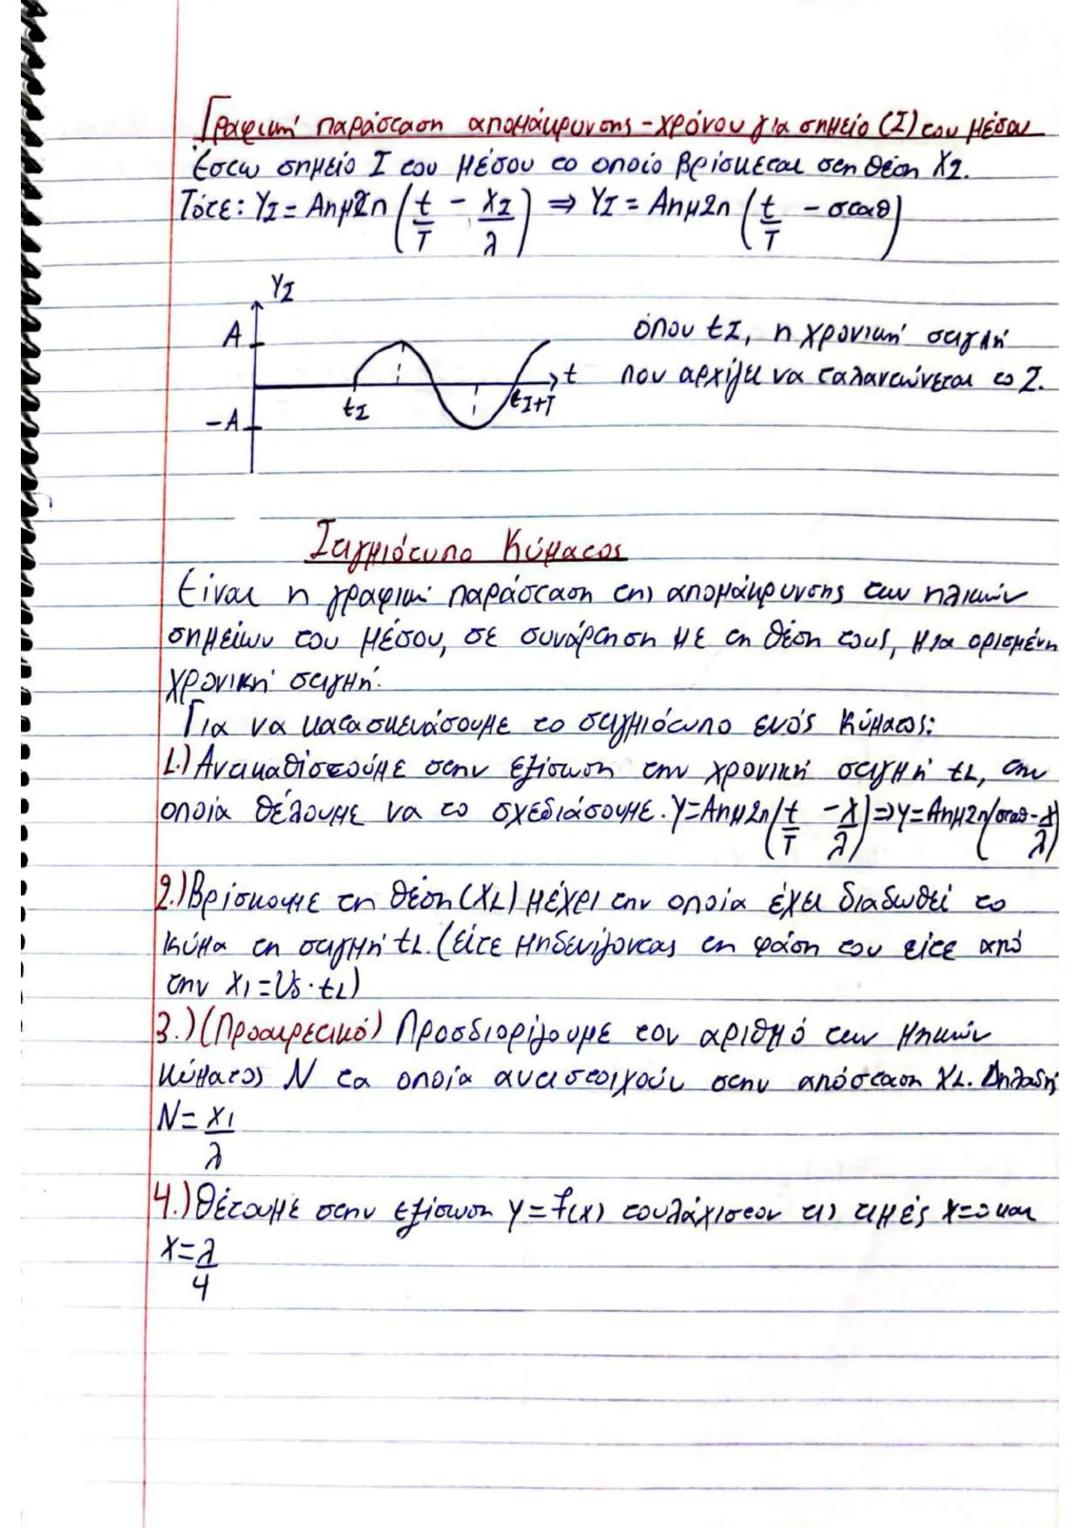 Γραφική παράσταση απομάκρυνσης - χρόνου για σημείο (Σ) του μέσου
Έστω σημείο Σ του μέσου το οποίο βρίσκεται στη θέση ΧΣ.
Τότε: YΣ = Aημ2π (t/T - XΣ/λ) ⇒ YΣ = Aημ2π (t/T - σταθ)
YΣ
A
-A
tΣ
tΣ+T
t
όπου tΣ, η χρονική στιγμή
που αρχίζει να ταλαντώνεται το Σ.
Στιγμιότυπο Κύματος
Είναι η γραφική παράσταση της απομάκρυνσης των υλικών
σημείων του μέσου, σε συνάρτηση με τη θέση τους, μια ορισμένη
χρονική στιγμή.
Για να κατασκευάσουμε το στιγμιότυπο ενός κύματος:
1.) Αντικαθιστούμε στην εξίσωση την χρονική στιγμή t1, την
οποία θέλουμε να το σχεδιάσουμε. y=Aημ2π(t/T - x/λ) ⇒ y=Aημ2π(σταθ - x/λ)
2.) Βρίσκουμε τη θέση (X1) μέχρι την οποία έχει διαδωθεί το
κύμα τη στιγμή t1. (είτε μηδενίζοντας τη φάση του είτε από
την X1=υδ·t1)
3.) (Προαιρετικό) Προσδιορίζουμε τον αριθμό των μηκών
κύματος N τα οποία αντιστοιχούν στην απόσταση X1. Δηλαδή
N = X1/λ
4.) Θέτουμε στην εξίσωση y = f(x) τουλάχιστον τις τιμές x=0 και
x = λ/4